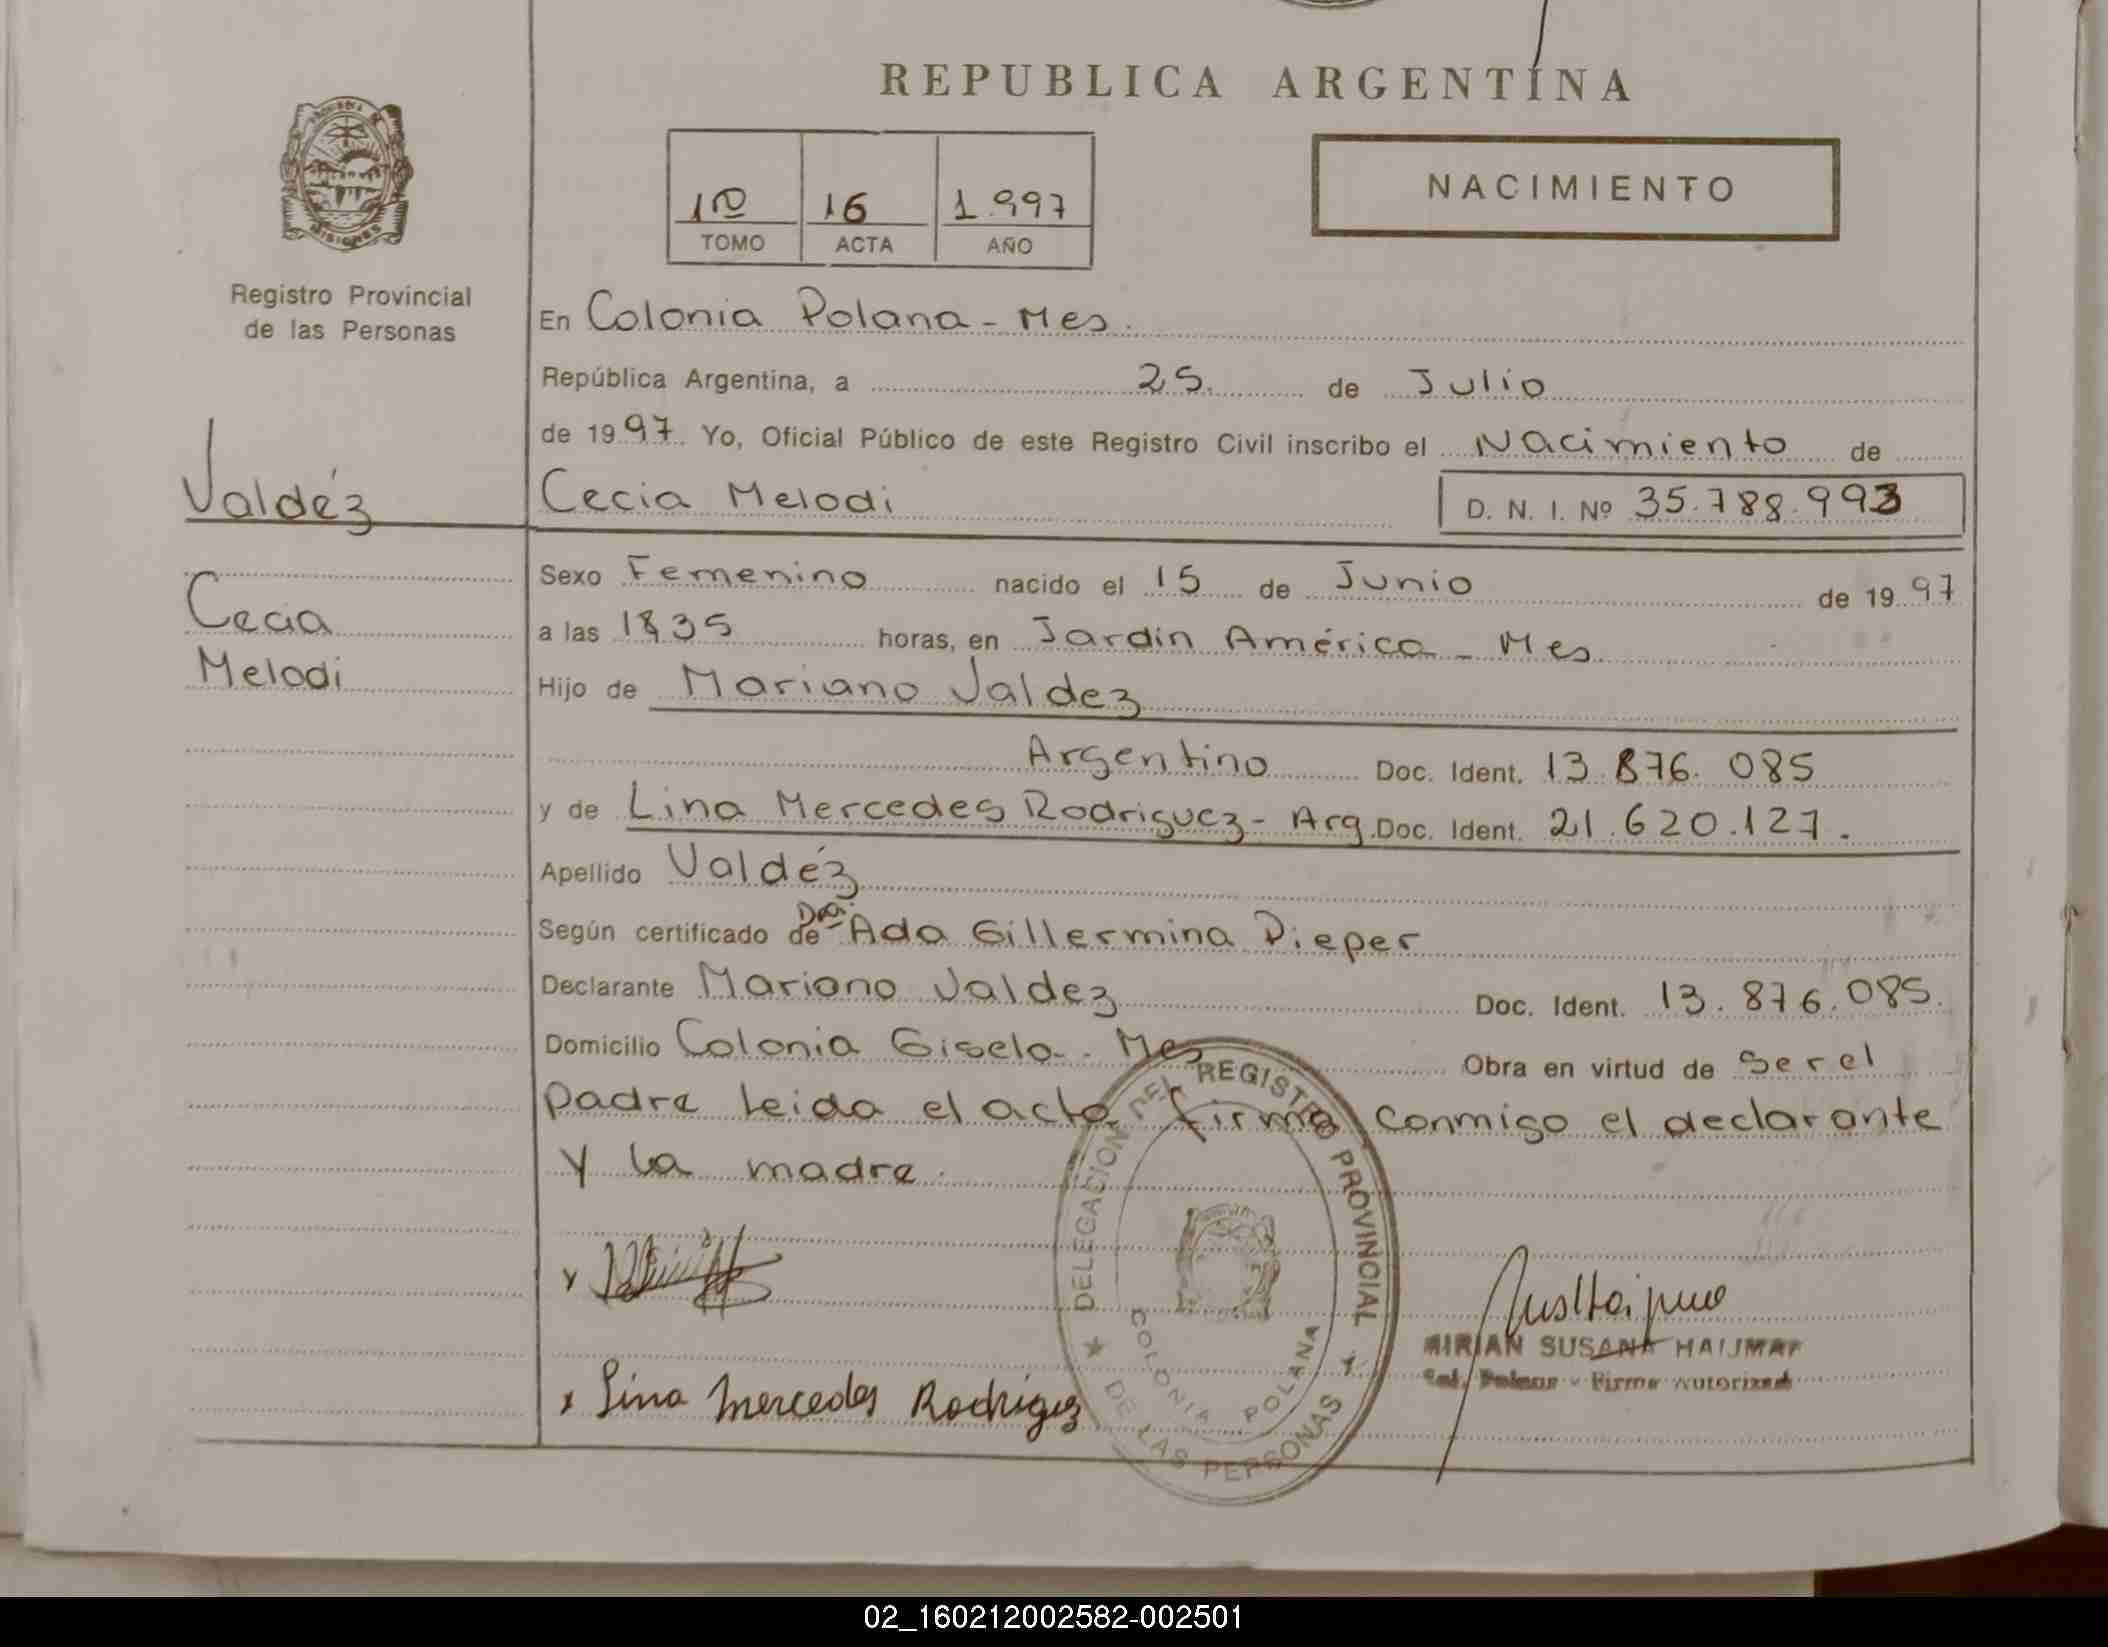 REPUBLICA ARGENTINA
MISIONES
1º 16 1.997
TOMO ACTA AÑO
NACIMIENTO
Registro Provincial
de las Personas
En Colonia Polana - Mes.
República Argentina, a 25. de Julio
de 1997. Yo, Oficial Público de este Registro Civil inscribo el Nacimiento de
Valdéz
Cecia Melodi D. N. I. Nº 35.788.993
Sexo Femenino nacido el 15 de Junio de 1997
Cecia
a las 1835 horas, en Jardin América - Mes
Melodi
Hijo de Mariano Valdez
Argentino Doc. Ident. 13.876.085
y de Lina Mercedes Rodriguez - Arg. Doc. Ident. 21.620.127.
Apellido Valdéz
Según certificado de Dra. Ada Gillermina Dieper
Declarante Mariano Valdez Doc. Ident. 13.876.085.
Domicilio Colonia Gisela - Mes Obra en virtud de Ser el
padre leida el acta firma conmigo el declarante
y la madre.
DELEGACION DEL REGISTRO PROVINCIAL
DE LAS PERSONAS
COLONIA POLANA
MIRIAN SUSANA
Col. Polana - Firma Autorizada
x Lina Mercedes Rodrigez
02_160212002582-002501